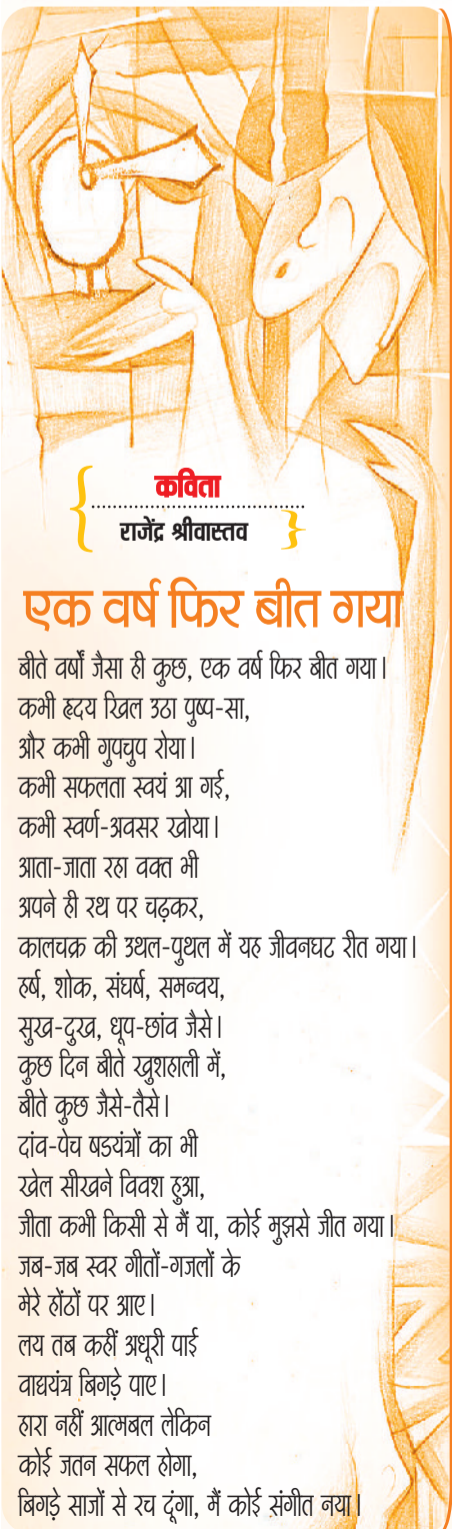 कविता
राजेंद्र श्रीवास्तव
एक वर्ष फिर बीत गया
बीते वर्षों जैसा ही कुछ, एक वर्ष फिर बीत गया।
कभी हृदय खिल उठा पुष्प-सा,
और कभी गुपचुप रोया।
कभी सफलता स्वयं आ गई,
कभी स्वर्ण-अवसर खोया।
आता-जाता रहा वक्त भी
अपने ही रथ पर चढ़कर,
कालचक्र की उथल-पुथल में यह जीवनघट रीत गया।
हर्ष, शोक, संघर्ष, समन्वय,
सुख-दुख, धूप-छांव जैसे।
कुछ दिन बीते खुशहाली में,
बीते कुछ जैसे-तैसे।
दांव-पेच षडयंत्रों का भी
खेल सीखने विवश हुआ,
जीता कभी किसी से मैं या, कोई मुझसे जीत गया।
जब-जब स्वर गीतों-गजलों के
मेरे होंठों पर आए।
लय तब कहीं अधूरी पाई
वाद्ययंत्र बिगड़े पाए।
हारा नहीं आत्मबल लेकिन
कोई जतन सफल होगा,
बिगड़े साजों से रच दूंगा, मैं कोई संगीत नया।